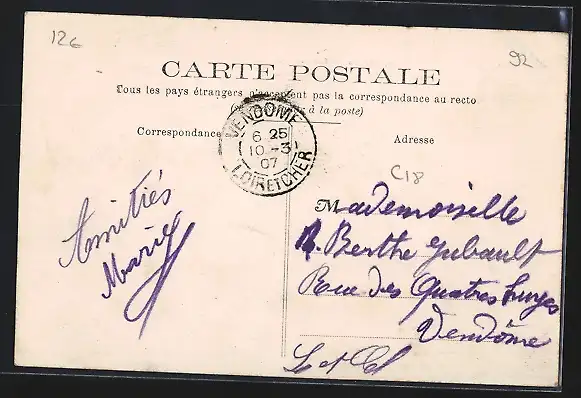 12€
92
CARTE POSTALE
Tous les pays étrangers n'acceptent pas la correspondance au recto
à la poste)
Correspondance
Adresse
VENDOME
6 25
10 - 3
07
LOIR ET CHER
C18
Amitiés
Marie
Mademoiselle
Berthe
Rue des Quatres
Vendôme
L et Ch